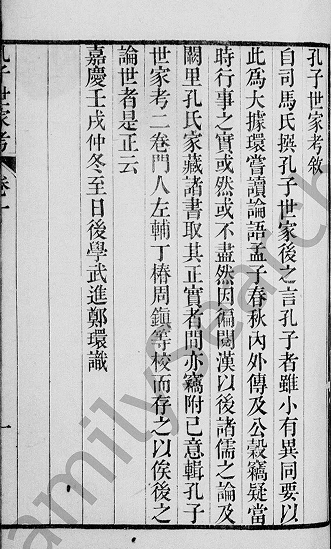 孔子世家考敘
自司馬氏撰孔子世家後之言孔子者雖小有異同要以
此爲大據環嘗讀論語孟子春秋內外傳及公穀竊疑當
時行事之實或然或不盡然因徧閱漢以後諸儒之論及
闕里孔氏家藏諸書取其正實者間亦竊附己意輯孔子
世家考二卷門人左輔丁椿周鎮等校而存之以俟後之
論世者是正云
嘉慶壬戌仲冬至日後學武進鄭環識
孔子世家考 卷上 一
amilySearch